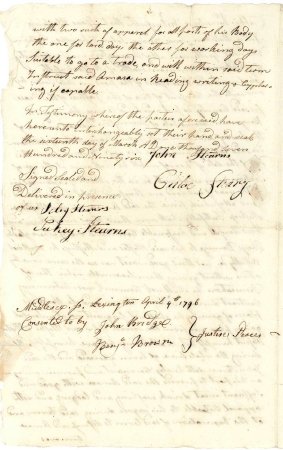 with two suits of apparel for all parts of his Body
the one for Lord day, the other for working days
Suitable to go to a trade one well within said term
Instruct said Amasa in Reading writing & Cypher-
ing if capable
In testimony whereof the parties aforesaid have
hereunto interchangeably set their hand and seals
the sixteenth day of March AD one thousand seven
Hundred and Ninety six John Stearns
Signed sealed and
Delivered in presence
of us
Stearns
Stearns
Middlesex, ss. Lexington April 4th, 1796
Consented to by John Bridge
Benja Brown } Justices Peace